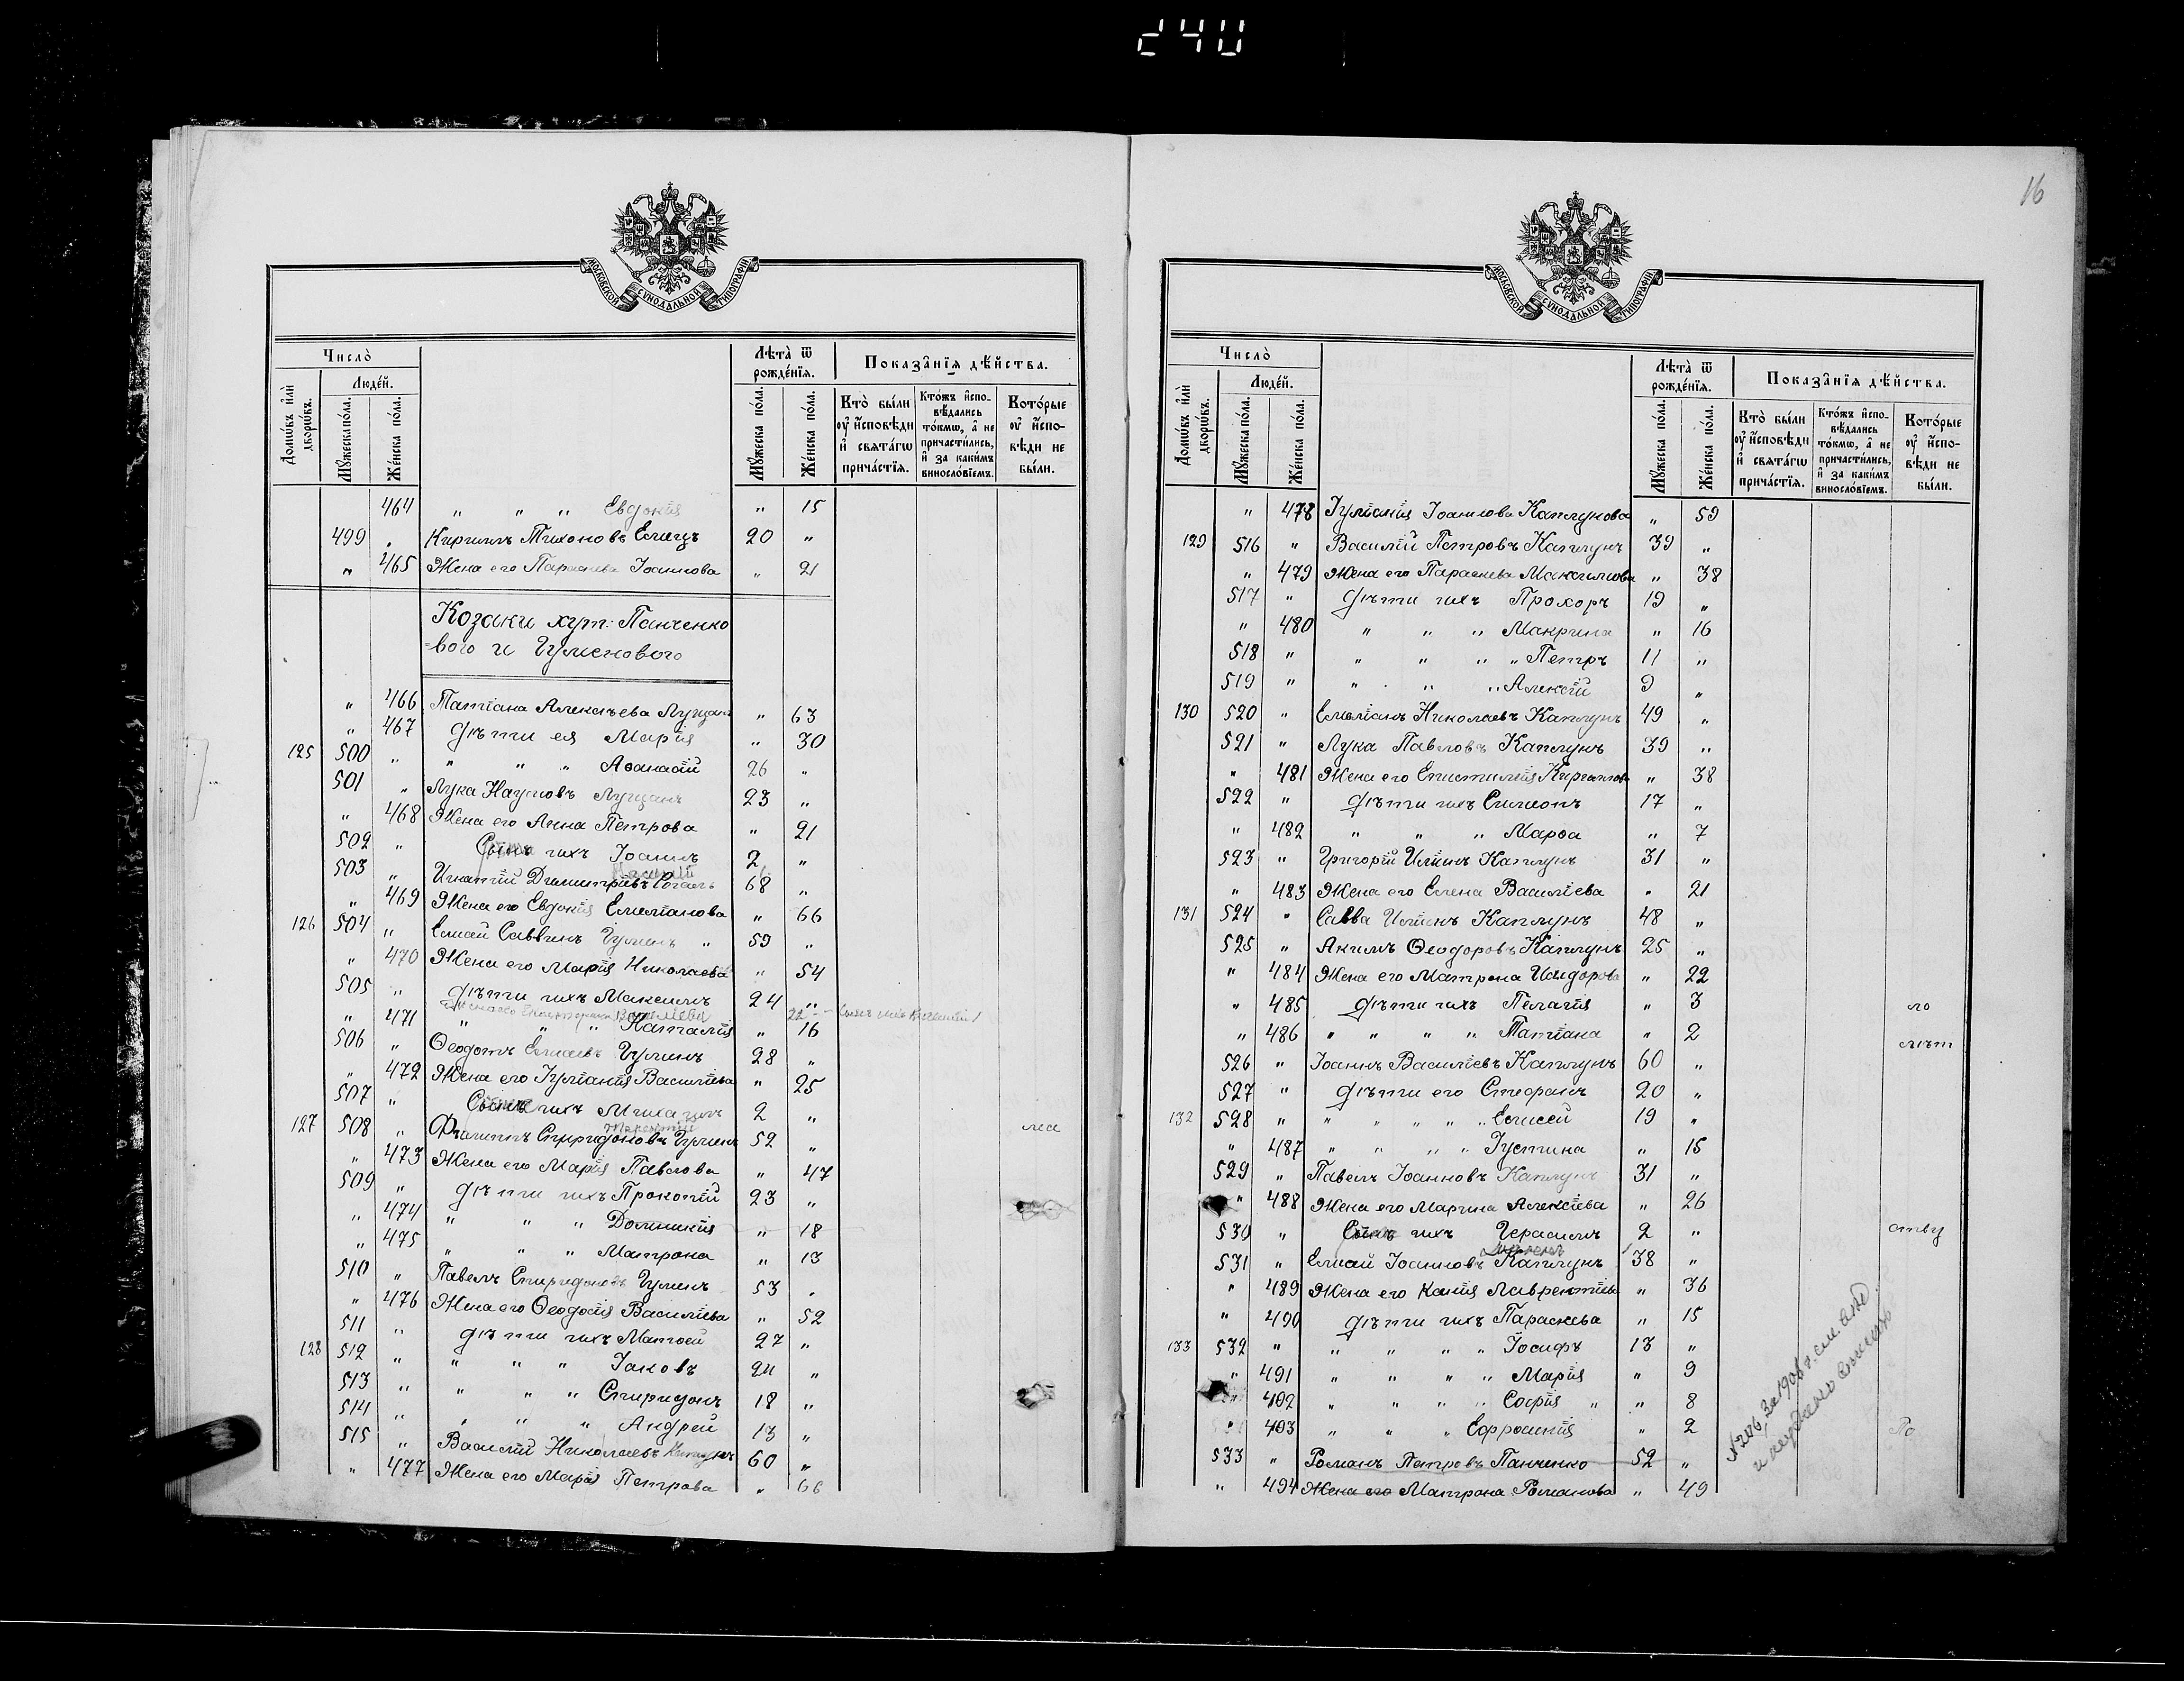 240
16
МОСКОВСКОЙ СѴНОДАЛЬНОЙ ТИПОГРАФІИ
Число̀
Людей.
Домѡвъ или дворѡвъ.
Мужеска пола.
Женска пола.
Лѣта ѿ рожденїѧ.
Мужеска пола.
Женска пола.
Показанїѧ дѣйства.
Кто были у исповѣди и свѧтагѡ причастїѧ.
Ктожъ исповѣдались токмѡ, а не причастились, и за какимъ винословїемъ.
Которые у исповѣди не были.
464 " " " Евдокія " 15
499 " Кириллъ Тихоновъ Емецъ 20 "
" 465 Жена его Параскева Іоаннова " 21
Козаки хут: Панченко
-вого и Гуменового
" 466 Татіана Алексѣева Лущан " 63
" 467 Дѣти ея Марія " 30
125 500 " " " " Аѳанасій 26 "
501 " Лука Наумовъ Лущанъ 23 "
" 468 Жена его Анна Петрова " 21
502 " Сынъ ихъ Іоаннъ 2 "
Василій
503 " Игнатій Димитріевъ 68 "
" 469 Жена его Евдокія Емеліанова " 66
126 504 " Елисей Саввинъ Гуменъ " 59 "
" 470 Жена его Марія Николаева " 54
505 " Дѣти ихъ Максимъ 24 "
Жена его Екатерина Василіева 22
" 471 " " " Наталія " 16
506 " Ѳеодотъ Елисеевъ Гуменъ 28 "
" 472 Жена его Іуліанія Василіева " 25
507 " Сынъ ихъ Михаилъ 2 "
127 508 " Филиппъ Спиридоновъ Гуменъ 52 "
" 473 Жена его Марія Павлова " 47
509 " Дѣти ихъ Прокопій 23 "
" 474 " " " Домникія " 18
" 475 " " " Матрона " 13
510 " Павелъ Спиридоновъ Гуменъ 53 "
" 476 Жена его Ѳеодосія Василіева " 52
511 " Дѣти ихъ Матѳей 27 "
128 512 " " " " Іаковъ 24 "
513 " " " " Спиридонъ 18 "
514 " " " " Андрей 13 "
515 " Василій Николаевъ Каплунъ 60 "
" 477 Жена его Марія Петрова " 66
Число̀
Людей.
Домѡвъ или дворѡвъ.
Мужеска пола.
Женска пола.
МОСКОВСКОЙ СѴНОДАЛЬНОЙ ТИПОГРАФІИ
Лѣта ѿ рожденїѧ.
Мужеска пола.
Женска пола.
Показанїѧ дѣйства.
Кто были у исповѣди и свѧтагѡ причастїѧ.
Ктожъ исповѣдались токмѡ, а не причастились, и за какимъ винословїемъ.
Которые у исповѣди не были.
" 478 Іуліанія Іоаннова Каплунова " 59
129 516 " Василій Петровъ Каплунъ 39 "
" 479 Жена его Параскева Максимова " 38
517 " Дѣти ихъ Прохоръ 19 "
" 480 " " " Макрина " 16
518 " " " " " Петръ 11 "
519 " " " " Алексій 9 "
130 520 " Емеліанъ Николаевъ Каплунъ 49 "
521 " Лука Павловъ Каплунъ 39 "
" 481 Жена его Епистимія Кириллова " 38
522 " Дѣти ихъ Симеонъ 17 "
" 482 " " " Марѳа " 7
523 " Григорій Иліинъ Каплунъ 31 "
" 483 Жена его Елена Василіева " 21
131 524 " Савва Иліинъ Каплунъ 48 "
525 " Акимъ Ѳеодоровъ Каплунъ 25 "
" 484 Жена его Матрона Исидорова " 22
" 485 Дѣти ихъ Пелагія " 3 ло
" 486 " " " " Татіана " 2 лѣт
526 " Іоаннъ Василіевъ Каплунъ 60 "
527 " Дѣти его Стефанъ 20 "
132 528 " " " " " " Елисей 19 "
" 487 " " " " Іустина " 15
529 " Павелъ Іоанновъ Каплунъ 31 "
" 488 Жена его Марина Алексіева " 26
530 " Сынъ ихъ Герасимъ 2 " ству
531 " Елисей Іоанновъ Каплунъ 38 "
" 489 Жена его Ксенія Лаврентіева " 36
" 490 Дѣти ихъ Параскева " 15
133 532 " " " " " Іосифъ 13 "
" 491 " " " " Марія " 9
" 492 " " " " Софія " " 8
" 493 " " " Евфросинія " 2 По
533 " Романъ Петровъ Панченко 52 "
" 494 Жена его Матрона Романова " 49